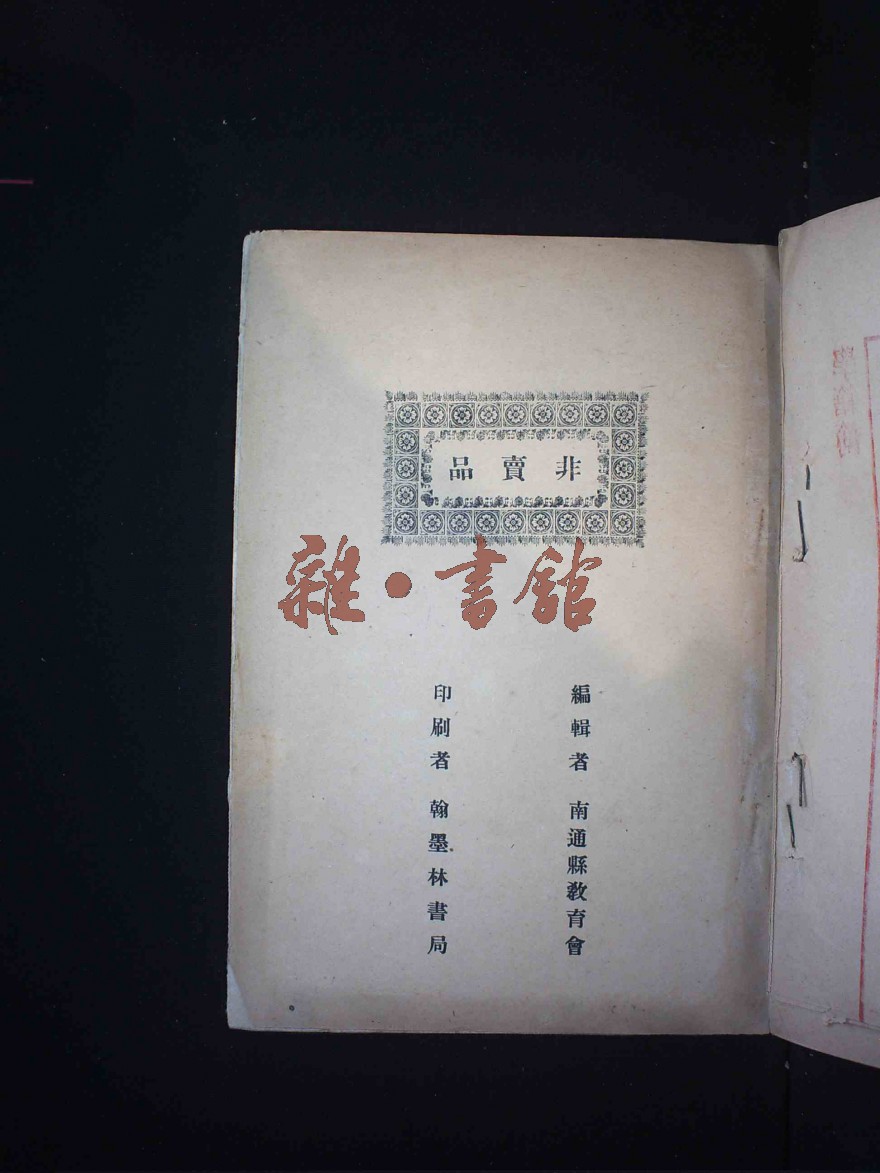 非賣品
雜·書館
編輯者 南通縣教育會
印刷者 翰墨林書局